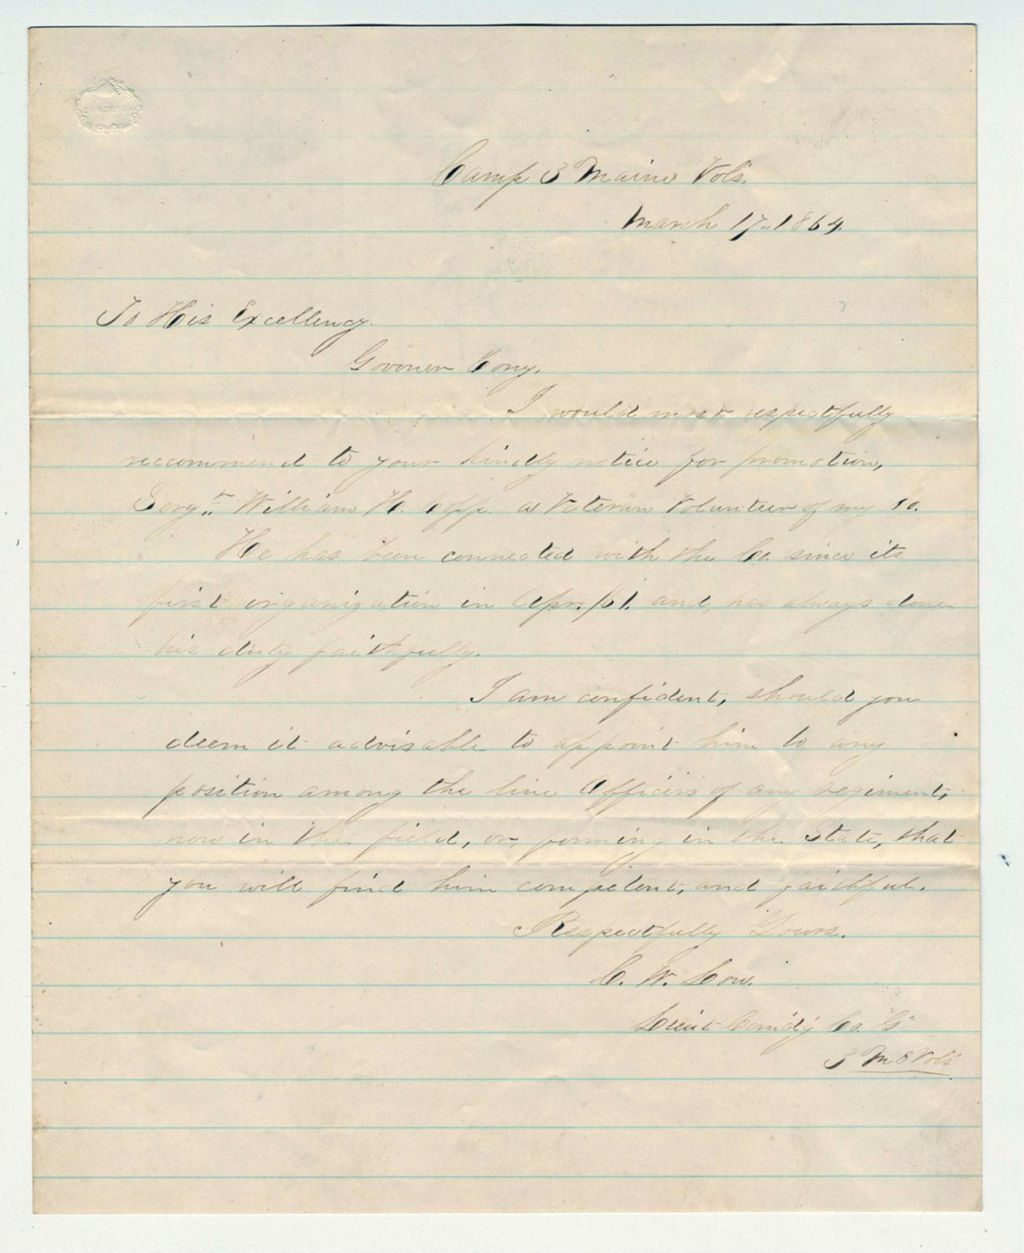 Camp 3 Maine Vols.
March 17. 1864.
To His Excellency.
Govoner Cony.
I would most respectfully
reccommend to your kindly notice for promotion,
Sergt. William H. a Veteran Volunteer of my Co.
He has been connected with the Co. since its
first organization in Apr. /61. and, has always done
his duty faithfully.
I am confident, should you
deem it advisable to appoint him to any
position among the line Officers of any regiment,
now in the field, or, forming in the State, that
you will find him competent, and faithful.
Respectfully Yours.
C. W. Low.
Lieut Comd'g Co. "G"
3 Me Vols